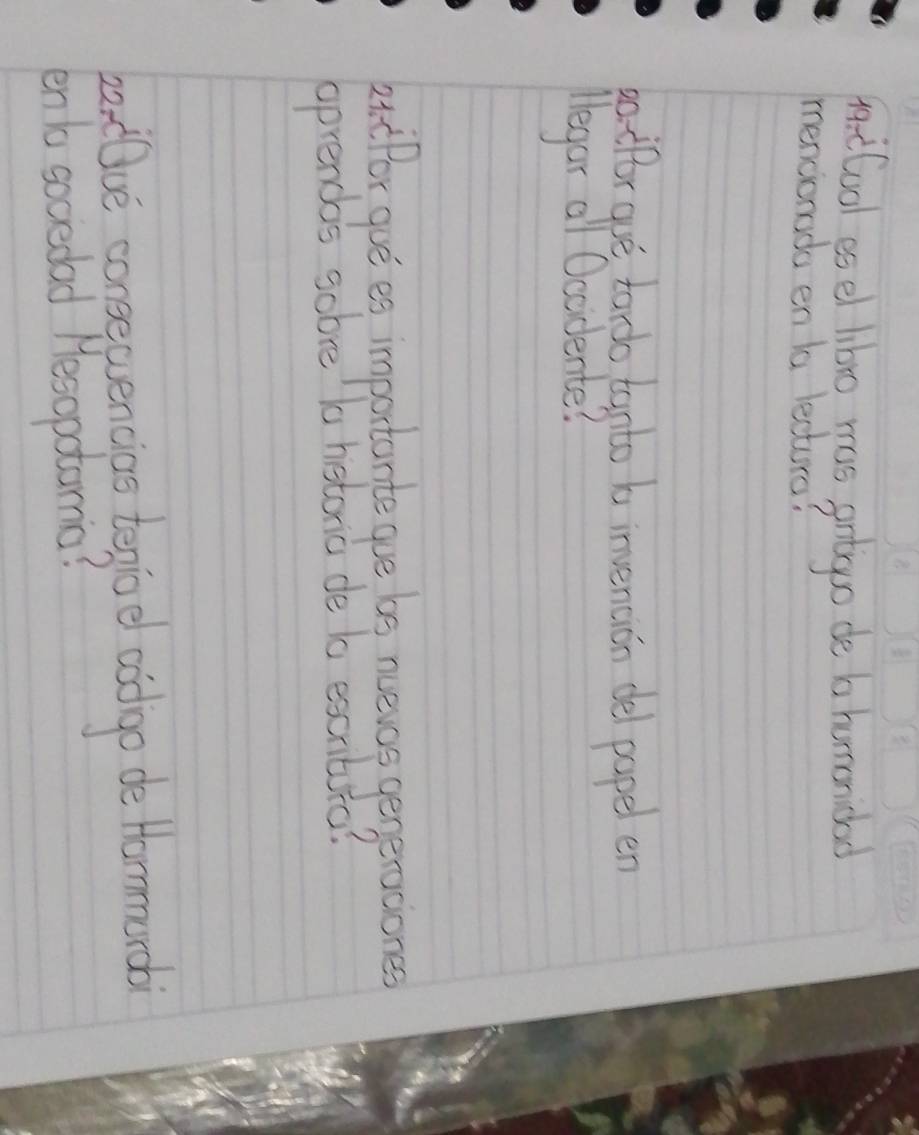 19.-¿Cual es el libro mas antiguo de la humanidad
mencionada en la lectura?
20.-¿Por qué tardo tanto la invención del papel en
llegar al Occidente?
21.-¿Por qué es importante que las nuevas generaciones
aprendas sobre la historia de la escritura?
22.-¿Qué consecuencias tenía el código de Hammurabi
en la sociedad Mesopotamia?